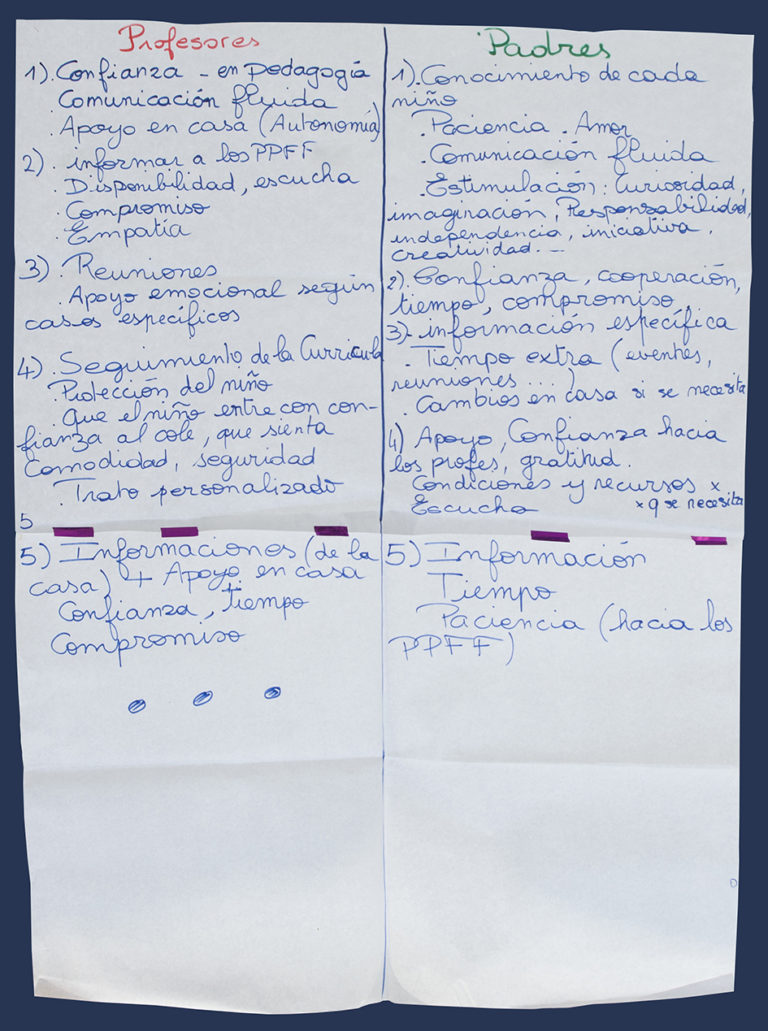 Profesores
1). Confianza - en pedagogía
. Comunicación fluida
. Apoyo en casa (Autonomía)
2) . informar a los PPFF
. Disponibilidad, escucha
. Compromiso
. Empatía
3) . Reuniones
. Apoyo emocional según
casos específicos
4) . Seguimiento de la Curricula
. Protección del niño
. Que el niño entre con con-
fianza al cole, que sienta
comodidad, seguridad
. Trato personalizado
5
5) Informaciones (de la
casa) + Apoyo en casa
Confianza, tiempo
Compromiso
Padres
1). Conocimiento de cada
niño
. Paciencia . Amor
. Comunicación fluida
. Estimulación: Curiosidad,
imaginación, Responsabilidad,
independencia, iniciativa,
creatividad...
2). Confianza, cooperación,
tiempo, compromiso,
3)- información específica
. Tiempo extra (eventes,
reuniones ...)
. Cambios en casa si se necesita
4) Apoyo, Confianza hacia
los profes, gratitud.
Condiciones y recursos x
Escucha x q se necesita
5) Información
Tiempo
Paciencia (hacia los
PPFF)